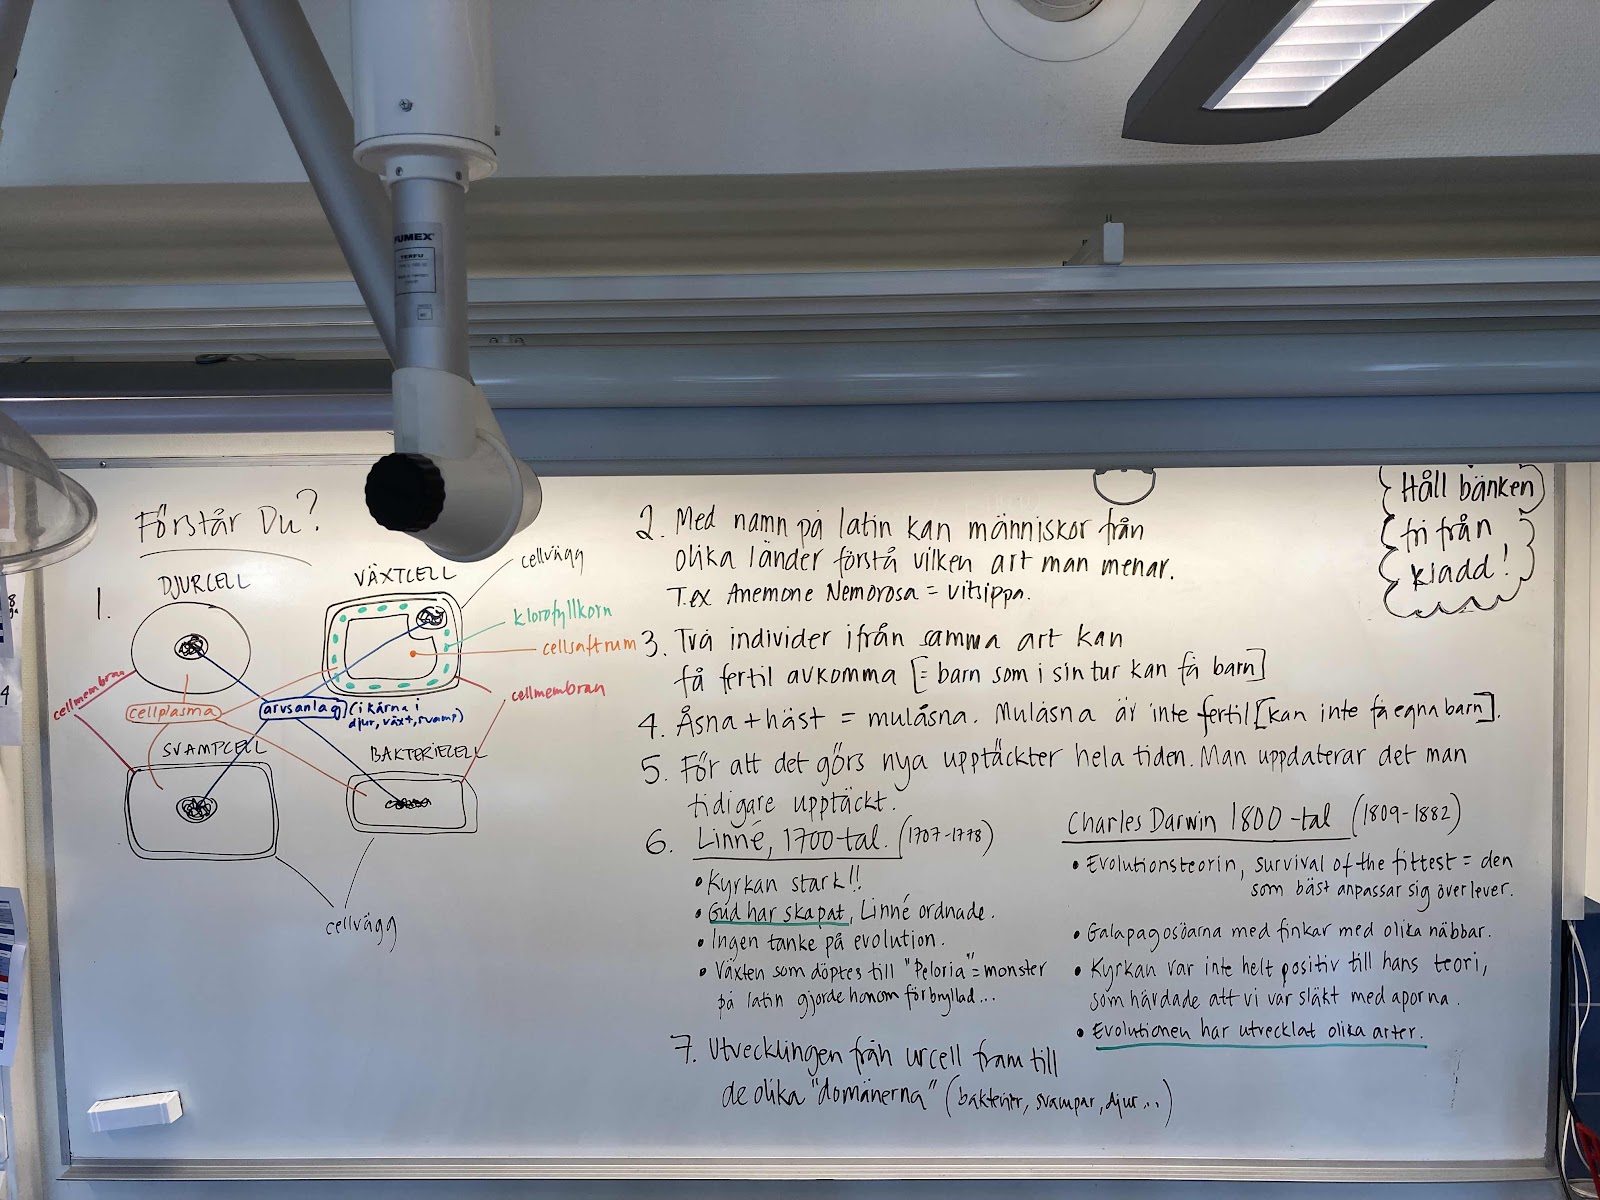 FUMEX
TERFU
Förstår Du?
1.
DJURCELL
VÄXTCELL
cellvägg
klorofyllkorn
cellsaftrum
cellmembran
cellmembran
cellplasma
arvsanlag (i kärna i
djur, växt, svamp)
SVAMPCELL
BAKTERIECELL
cellvägg
2. Med namn på latin kan människor från
olika länder förstå vilken art man menar.
T.ex Anemone Nemorosa = vitsippa.
3. Två individer ifrån samma art kan
få fertil avkomma [= barn som i sin tur kan få barn]
4. Åsna + häst = mulåsna. Mulåsna är inte fertil [kan inte få egna barn].
5. För att det görs nya upptäckter hela tiden. Man uppdaterar det man
tidigare upptäckt.
6. Linné, 1700-tal. (1707-1778)
• Kyrkan stark!!
• Gud har skapat, Linné ordnade.
• Ingen tanke på evolution.
• Växten som döptes till "Peloria" = monster
på latin gjorde honom förbryllad...
Charles Darwin 1800-tal (1809-1882)
• Evolutionsteorin, survival of the fittest = den
som bäst anpassar sig överlever.
• Galapagosöarna med finkar med olika näbbar.
• Kyrkan var inte helt positiv till hans teori,
som hävdade att vi var släkt med aporna.
• Evolutionen har utvecklat olika arter.
7. Utvecklingen från urcell fram till
de olika "domänerna" (bakterier, svampar, djur...)
Håll bänken
fri från
kladd!